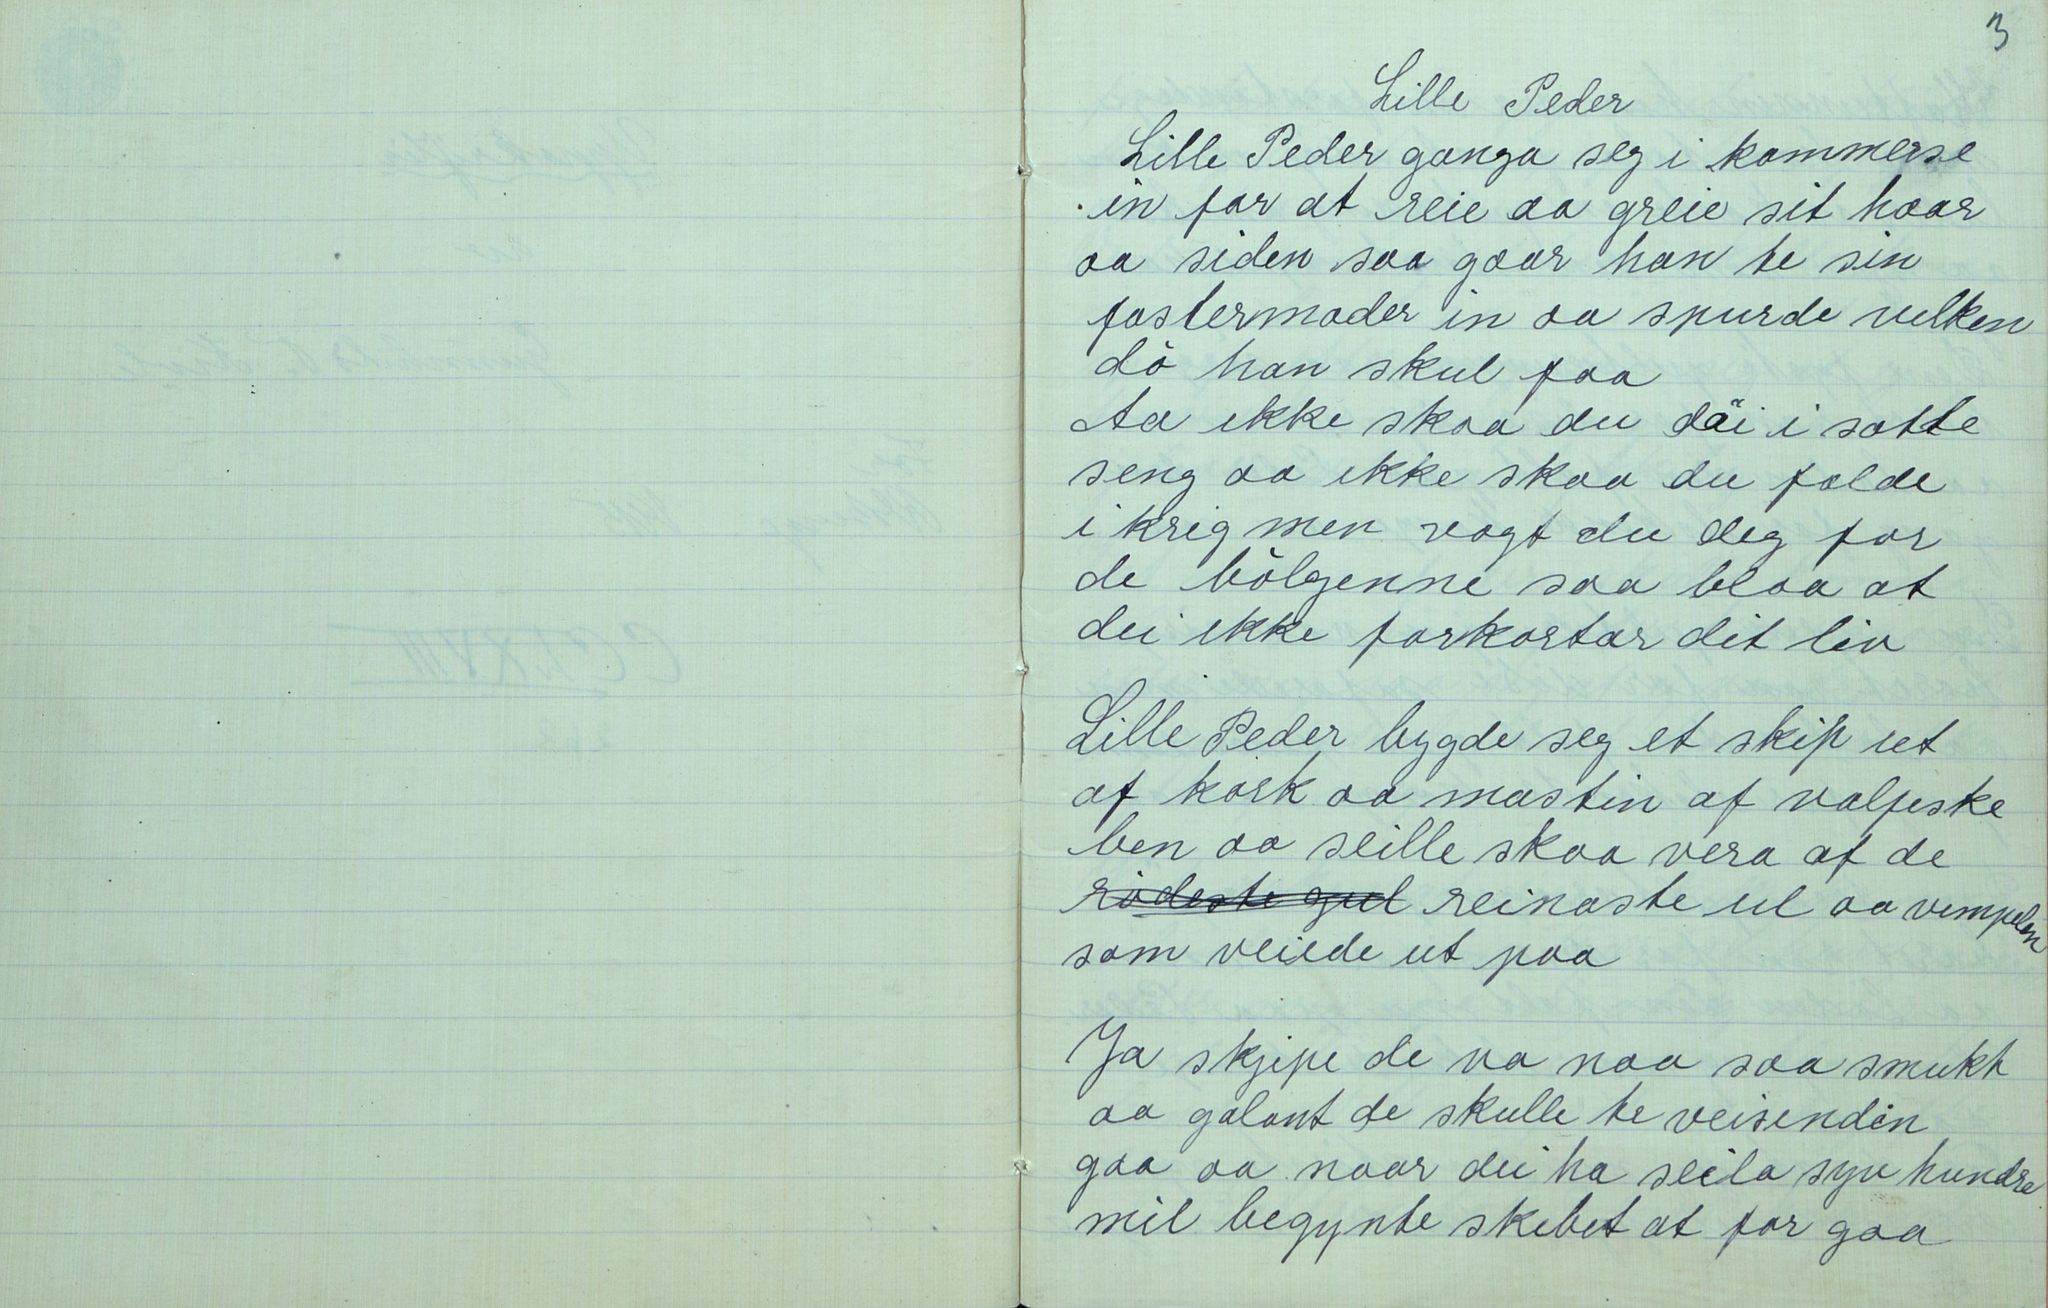 3
Lille Peder
Lille Peder ganga seg i kammerse
in for at reie aa greie sit haar
aa siden saa gaar han te sin
fostermoder in aa spurde vilken
dö han skul faa
Aa ikke skaa du däi i sotte
seng aa ikke skaa du falde
i krig men vogt du deg for
de bölgenne saa blaa at
dei ikke forkortar dit liv
Lille Peder bygde seg et skip ut
af kork aa mastin af valfiske
ben aa seille skaa vera af de
rödeste gul reinaste ul aa vimpelen
som veiede ut paa
Ja skjipe de va naa saa smukt
aa galant de skulle te veisendin
gaa aa naar dei ha seila syv hundre
mil begynte skibet at for gaa